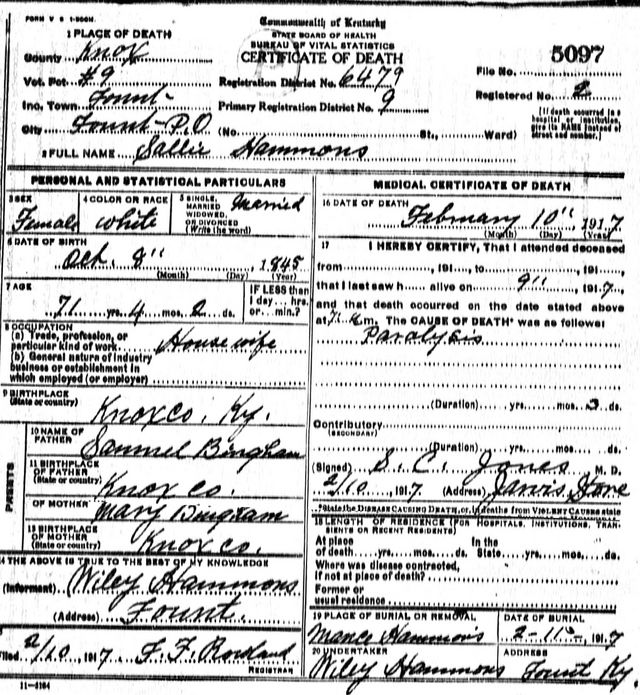 FORM V S 1-500M.
Commonwealth of Kentucky
STATE BOARD OF HEALTH
BUREAU OF VITAL STATISTICS
CERTIFICATE OF DEATH
1 PLACE OF DEATH
County Knox
Vot. Pct. #9
Inc. Town Fount
City Fount - P.O. (No. St., Ward)
Registration District No. 6479
Primary Registration District No. 9
File No. 5097
Registered No. 2
[If death occurred in a
hospital or institution,
give its NAME instead of
street and number.]
2 FULL NAME Sallie Hammons
PERSONAL AND STATISTICAL PARTICULARS
3 SEX Female
4 COLOR OR RACE white
5 SINGLE, MARRIED, WIDOWED, OR DIVORCED (Write the word) Married
6 DATE OF BIRTH
Oct. 8", 1845
(Month) (Day) (Year)
7 AGE
71 yrs. 4 mos. 2 ds.
IF LESS than
1 day... hrs.
or... min.?
8 OCCUPATION
(a) Trade, profession, or
particular kind of work House wife
(b) General nature of industry
business or establishment in
which employed (or employer)
9 BIRTHPLACE
(State or country) Knox co. Ky.
PARENTS
10 NAME OF
FATHER Samuel Bingham
11 BIRTHPLACE
OF FATHER
(State or country) Knox co.
OF MOTHER Mary Bingham
13 BIRTHPLACE
OF MOTHER
(State or country) Knox co.
14 THE ABOVE IS TRUE TO THE BEST OF MY KNOWLEDGE
(Informant) Wiley Hammons
(Address) Fount.
Filed 2/10 1917 F. F. Rowland
REGISTRAR
11-5184
MEDICAL CERTIFICATE OF DEATH
16 DATE OF DEATH
February 10", 1917
(Month) (Day) (Year)
17 I HEREBY CERTIFY, That I attended deceased
from , 191 , to , 191
that I last saw h alive on 9", 1917
and that death occurred on the date stated above
at m. The CAUSE OF DEATH* was as follows:
Paralysis
(Duration) yrs. mos. 3 ds.
Contributory
(SECONDARY)
(Duration) yrs. mos. ds.
(Signed) S. C. Jones M. D.
2/10, 1917 (Address) Jarvis Store
*State the DISEASE CAUSING DEATH, or, in deaths from VIOLENT CAUSES state
18 LENGTH OF RESIDENCE (FOR HOSPITALS, INSTITUTIONS, TRANSIENTS OR RECENT RESIDENTS)
At place In the
of death yrs. mos. ds. State yrs. mos. ds.
Where was disease contracted,
if not at place of death?
Former or
usual residence
19 PLACE OF BURIAL OR REMOVAL DATE OF BURIAL
Mance Hammons 2-11, 1917
20 UNDERTAKER ADDRESS
Wiley Hammons Fount Ky.